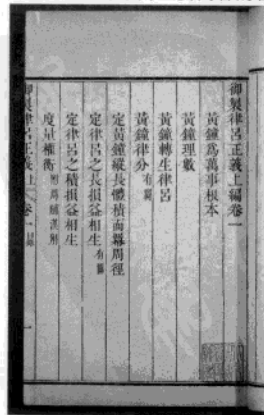 御製律呂正義上編卷一
黃鐘為萬事根本
黃鐘理數
黃鐘轉生律呂
黃鐘律分 有圖
定黃鐘縱長體積面羃周徑
定律呂之長損益相生 有圖
定律呂之積損益相生
度量權衡 附周鬴漢斛
御製律呂正義上 卷一 目錄 一